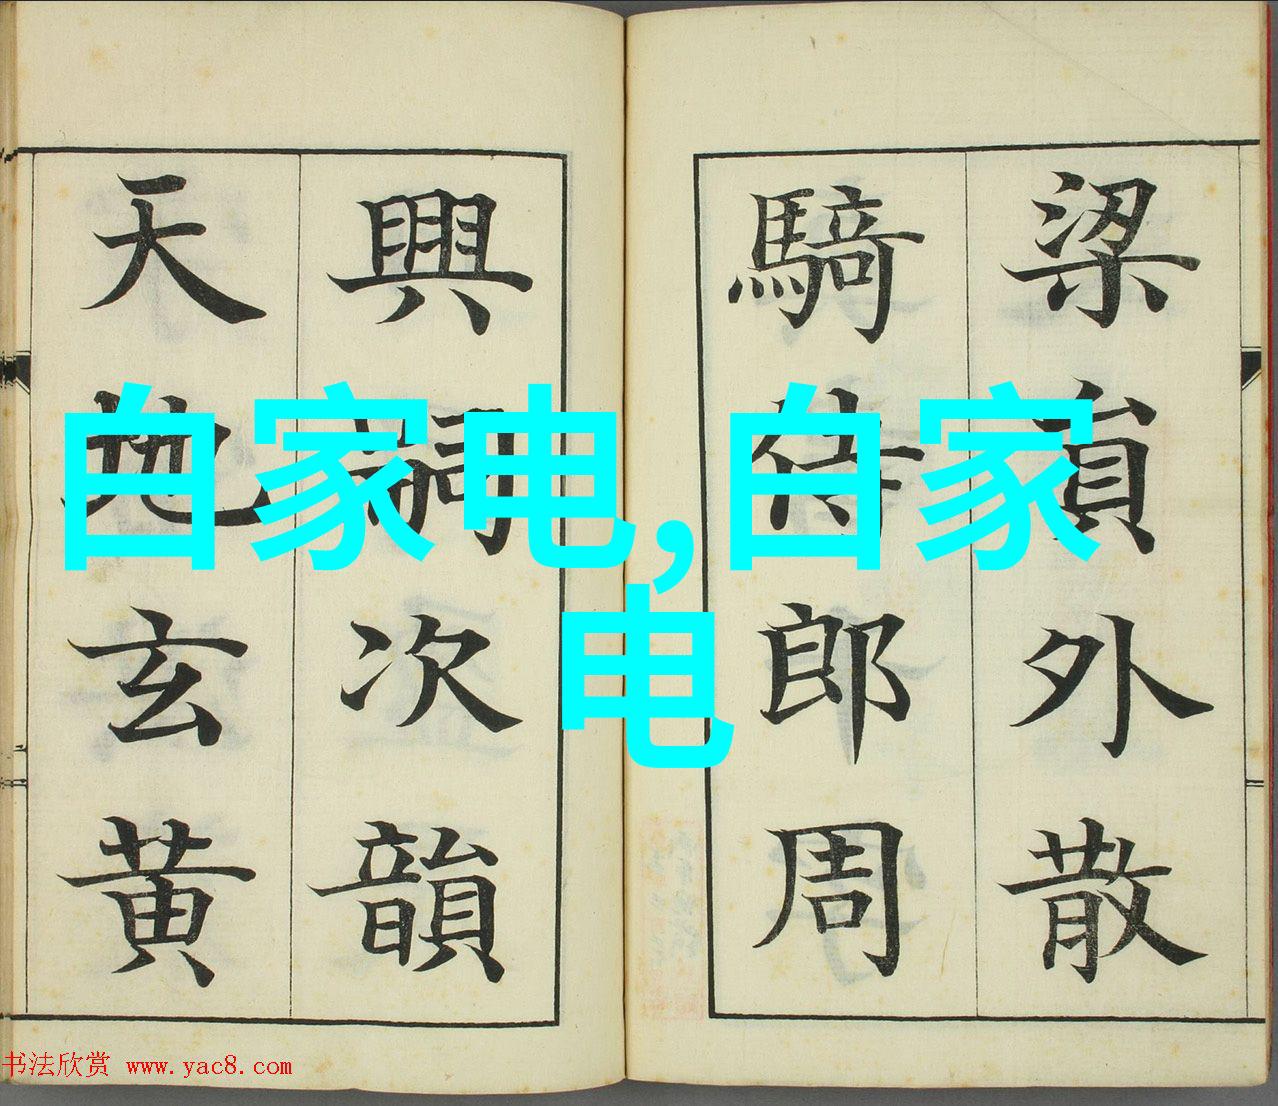 梁貟外散
騎侍郎周
興嗣次韻
天地玄黄
白家电,白家
电
书法欣赏 www.yac8.com